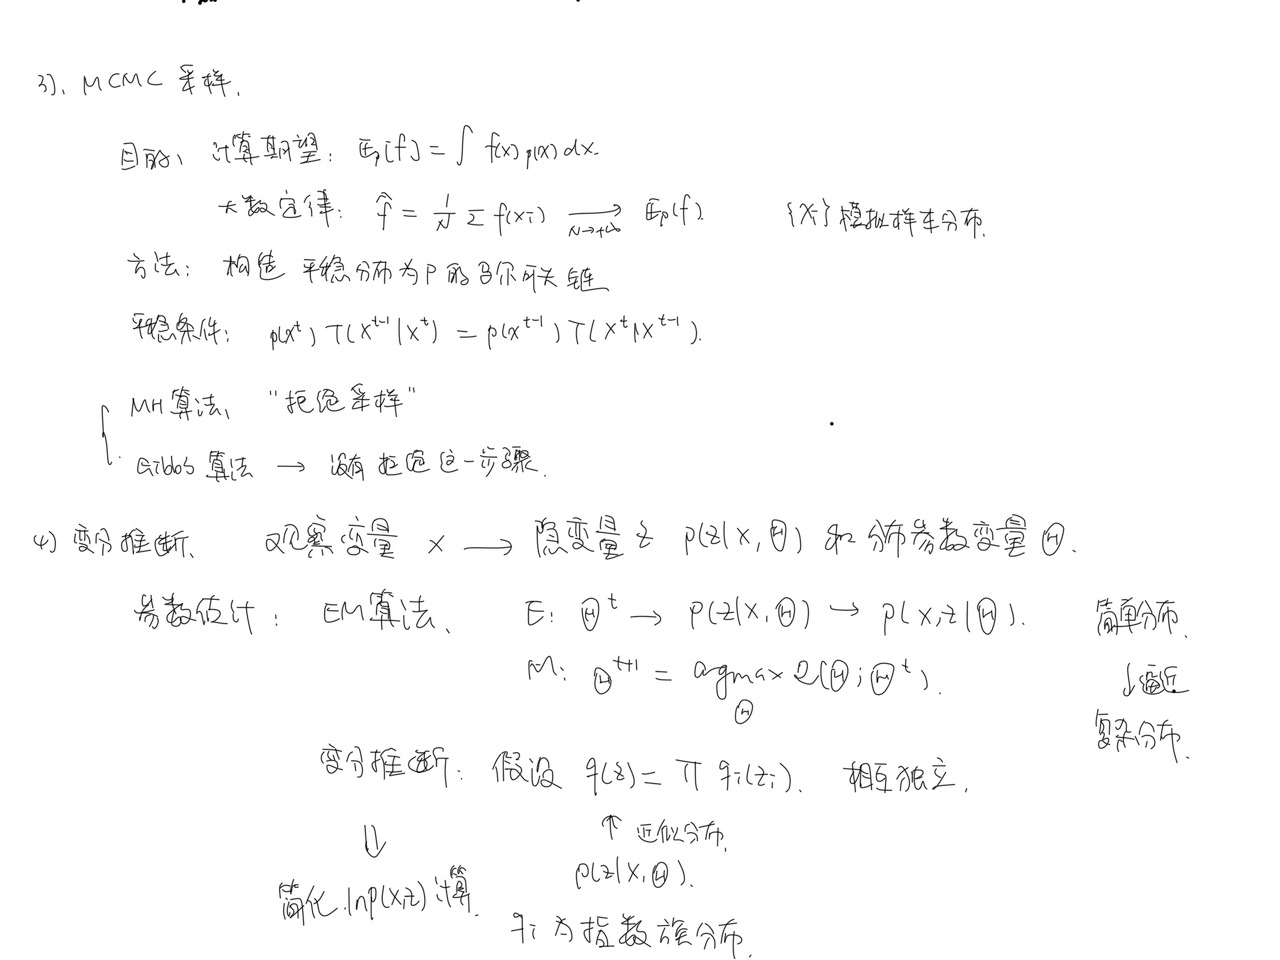 3)、MCMC 采样.
目的、计算期望: Ep[f] = ∫ f(x) p(x) dx.
大数定律: f̂ = 1/N Σ f(xi) →N→+∞ Ep(f). {xi} 模拟样本分布.
方法: 构造 平稳分布为P的马尔可夫链
平稳条件: p(x^t) T(x^{t-1}|x^t) = p(x^{t-1}) T(x^t|x^{t-1}).
MH算法、 "拒绝采样"
Gibbs 算法 → 没有拒绝这一步骤.
4) 变分推断、 观察变量 x → 隐变量 z p(z|x,Θ) 和 分布参数变量 Θ.
参数估计: EM算法、 E: Θ^t → p(z|x,Θ) → p(x,z|Θ). 简单分布.
M: Θ^{t+1} = argmax Q(Θ;Θ^t). ↓逼近
Θ
复杂分布.
变分推断: 假设 q(z) = π qi(zi). 相互独立.
⇓ ↑ 近似分布.
简化.lnp(x,z)计算. p(z|x,Θ).
qi 为指数族分布.